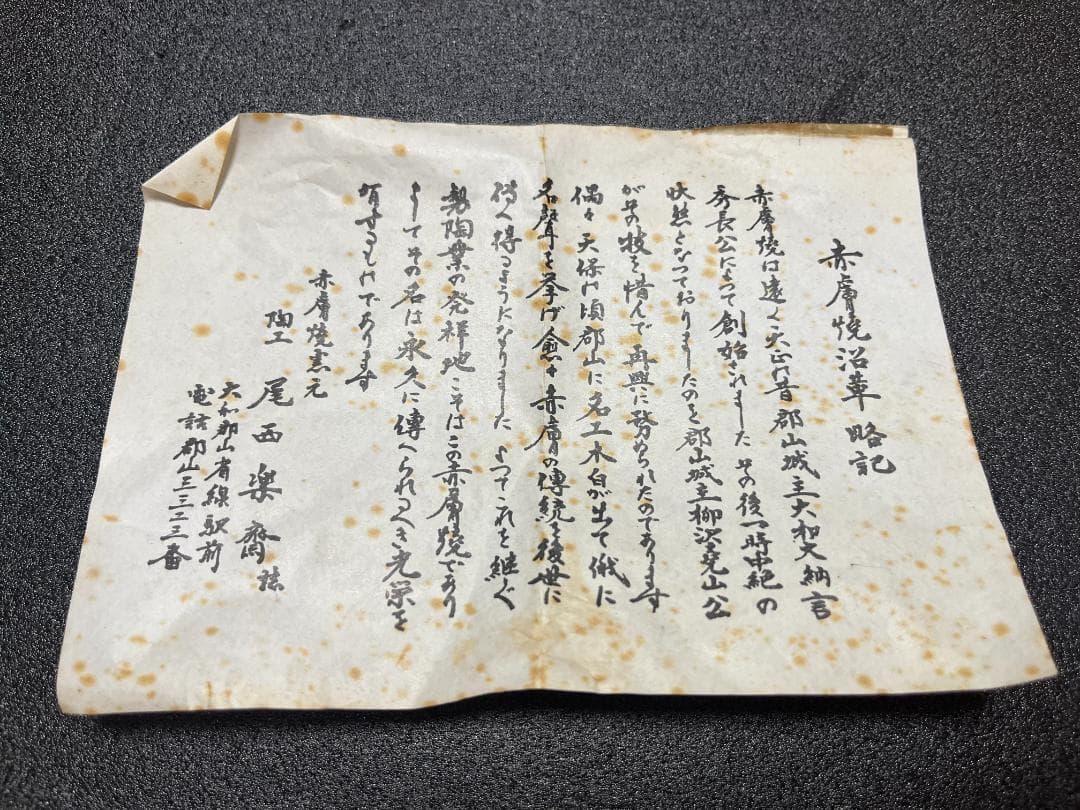 赤膚焼沿革略記
赤膚焼は遠く天正の昔郡山城主大和大納言
秀長公によつて創始されました その後一時中絶の
状態となつておりましたのを郡山城主柳沢堯山公
がその技を惜んで再興に努められたのであります
偶々天保の頃郡山に名工木白が出て俄に
名聲を挙げ愈々赤膚の傳統を後世に
得るようになりました よつてこれを継ぐ
製陶業の発祥地こそはこの赤膚焼であり
まして その名は永久に傳へられるべき光栄を
有するものであります
赤膚焼窯元
陶工 尾西楽斎 誌
大和郡山省線駅前
電話郡山三三二三番